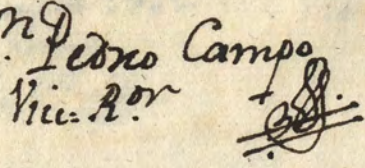 Pedro Campo
Vice=R.or